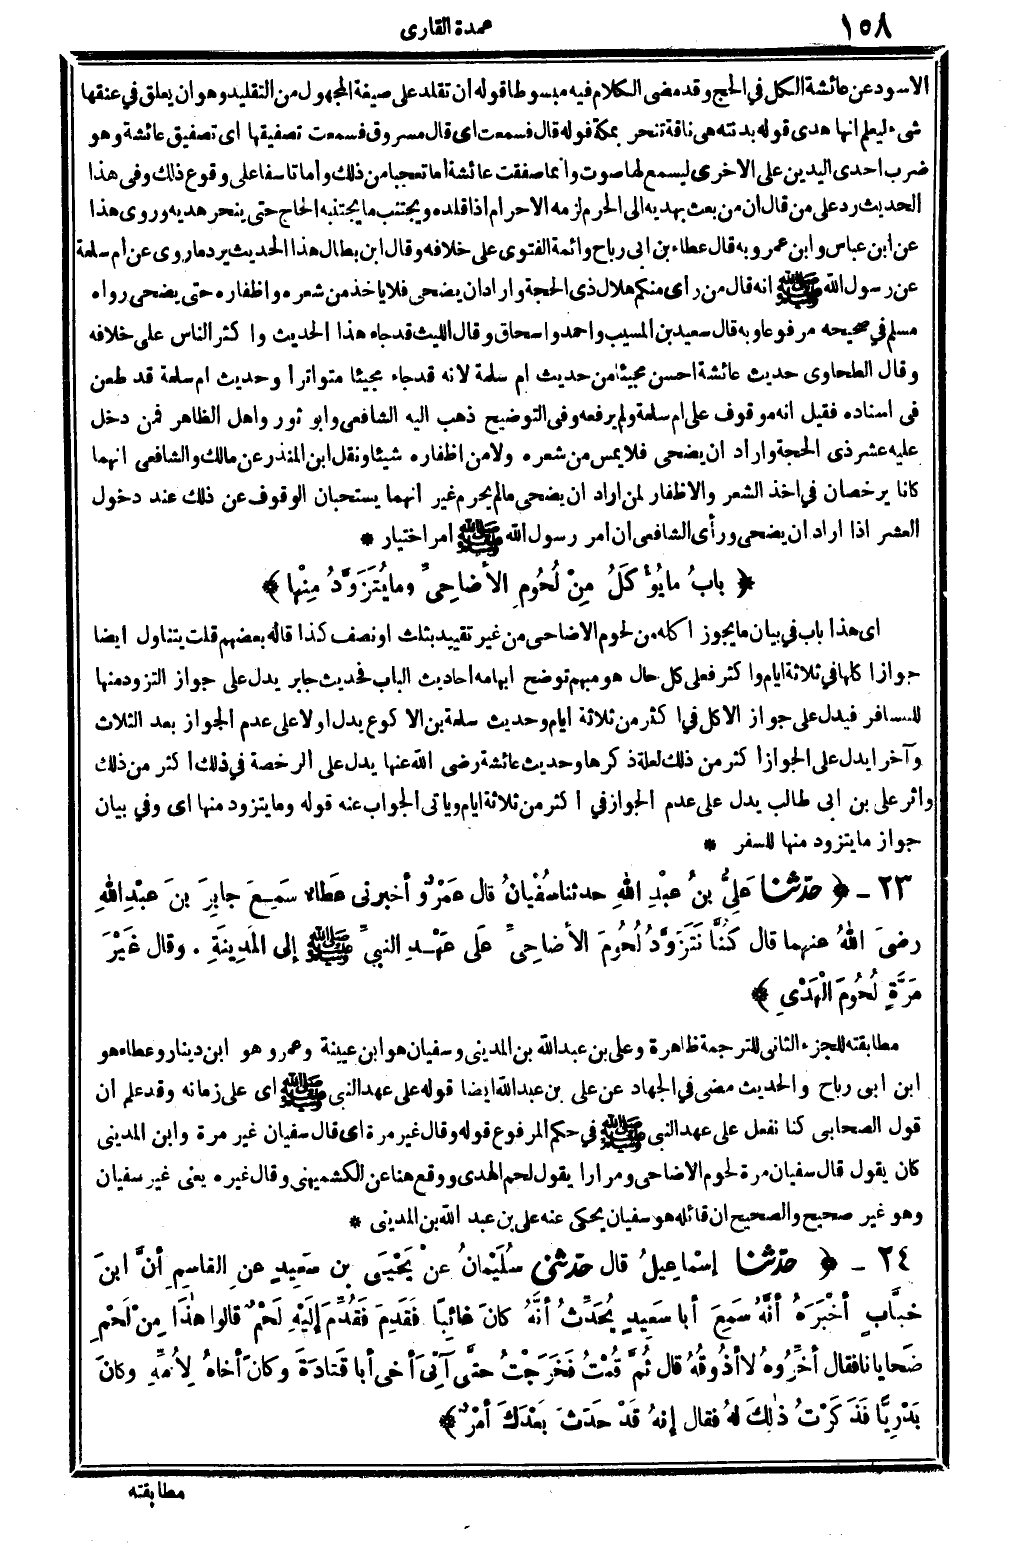 ١٥٨
عمدة القارى
الاسود عن عائشة الكل في الحج وقد مضى الكلام فيه مبسوطا قوله ان تقلد على صيغة المجهول من التقليد وهو ان يعلق في عنقها
شىء ليعلم انها هدى قوله بدنته هى ناقة تنحر بمكة قوله قال فسمعت اى قال مسروق فسمعت تصفيقها اى تصفيق عائشة وهو
ضرب احدى اليدين على الاخرى ليسمع لها صوت وانما صفقت عائشة اما تعجبا من ذلك واما تاسفا على وقوع ذلك وفى هذا
الحديث رد على من قال ان من بعث بهديه الى الحرم لزمه الاحرام اذا قلده ويجتنب ما يجتنبه الحاج حتى ينحر هديه وروى هذا
عن ابن عباس وابن عمر وبه قال عطاء بن ابى رباح وائمة الفتوى على خلافه وقال ابن بطال هذا الحديث يرد ما روى عن ام سلمة
عن رسول الله ﷺ انه قال من رأى منكم هلال ذى الحجة واراد ان يضحى فلا ياخذ من شعره واظفاره حتى يضحى رواه
مسلم في صحيحه مرفوعا وبه قال سعيد بن المسيب واحمد واسحاق وقال الليث قد جاء هذا الحديث واكثر الناس على خلافه
وقال الطحاوى حديث عائشة احسن مجيئا من حديث ام سلمة لانه قد جاء مجيئا متواترا وحديث ام سلمة قد طعن
فى اسناده فقيل انه موقوف على ام سلمة ولم يرفعه وفى التوضيح ذهب اليه الشافعى وابو ثور واهل الظاهر فمن دخل
عليه عشر ذى الحجة واراد ان يضحى فلا يمس من شعره ولا من اظفاره شيئا ونقل ابن المنذر عن مالك والشافعى انهما
كانا يرخصان في اخذ الشعر والاظفار لمن اراد ان يضحى مالم يحرم غير انهما يستحبان الوقوف عن ذلك عند دخول
العشر اذا اراد ان يضحى ورأى الشافعى ان امر رسول الله ﷺ امر اختيار *
﴿ بابُ ما يُؤْكَلُ مِنْ لُحُومِ الأضاحِىِّ وما يُتَزَوَّدُ مِنْها ﴾
اى هذا باب في بيان ما يجوز اكله من لحوم الاضاحى من غير تقييد بثلث او نصف كذا قاله بعضهم قلت يتناول ايضا
جواز اكلها في ثلاثة ايام واكثر فعلى كل حال هو مبهم توضح ابهامه احاديث الباب فحديث جابر يدل على جواز التزود منها
للمسافر فيدل على جواز الاكل في اكثر من ثلاثة ايام وحديث سلمة بن الاكوع يدل اولا على عدم الجواز بعد الثلاث
وآخرا يدل على الجواز اكثر من ذلك لعلة ذكرها وحديث عائشة رضى الله عنها يدل على الرخصة في ذلك اكثر من ذلك
واثر على بن ابى طالب يدل على عدم الجواز في اكثر من ثلاثة ايام وياتى الجواب عنه قوله وما يتزود منها اى وفي بيان
جواز ما يتزود منها للسفر *
٢٣ - ﴿ حَدَّثَنَا عَلِىُّ بنُ عَبْدِ اللهِ حدثنا سُفْيانُ قال عَمْرٌو أخبرنى عَطاءٌ سَمِعَ جابِرَ بنَ عبْدِ اللهِ
رضىَ اللهُ عنهما قال كُنَّا نَتَزَوَّدُ لُحُومَ الأضاحِىِّ عَلى عَهْدِ النبىِّ ﷺ إلى المَدِينَةِ . وقال غَيْرَ
مَرَّةٍ لُحُومَ الْهَدْىِ ﴾ *
مطابقته للجزء الثانى للترجمة ظاهرة وعلى بن عبد الله بن المدينى وسفيان هو ابن عيينة وعمرو هو ابن دينار وعطاء هو
ابن ابى رباح والحديث مضى في الجهاد عن على بن عبد الله ايضا قوله على عهد النبى ﷺ اى على زمانه وقد علم ان
قول الصحابى كنا نفعل على عهد النبى ﷺ في حكم المرفوع قوله وقال غير مرة اى قال سفيان غير مرة وابن المدينى
كان يقول قال سفيان مرة لحوم الاضاحى ومرارا يقول لحم الهدى ووقع هنا عن الكشميهنى وقال غيره يعنى غير سفيان
وهو غير صحيح والصحيح ان قائله هو سفيان يحكى عنه على بن عبد الله بن المدينى *
٢٤ - ﴿ حَدَّثَنَا إسْماعِيلُ قال حَدَّثَنى سُلَيْمانُ عنْ يَحْيَى بن سَعِيدٍ عنِ القاسِمِ أنَّ ابنَ
خبَّابٍ أخْبَرَهُ أنَّهُ سَمِعَ أبا سَعِيدٍ يُحَدِّثُ أنَّهُ كانَ غائِبًا فَقَدِمَ فَقُدِّمَ إلَيْهِ لَحْمٌ قالوا هٰذَا مِنْ لَحْمِ
ضَحايانا فقال أخِّرُوهُ لا أذُوقُهُ قال ثُمَّ قُمْتُ فَخَرَجْتُ حتَّى آتِىَ أخى أبا قَتادَةَ وكانَ أخاهُ لِأُمِّهِ وكانَ
بَدْرِيًّا فَذَكَرْتُ ذٰلِكَ لهُ فقال إنهُ قَدْ حَدَثَ بَعْدَكَ أمْرٌ ﴾ *
مطابقته